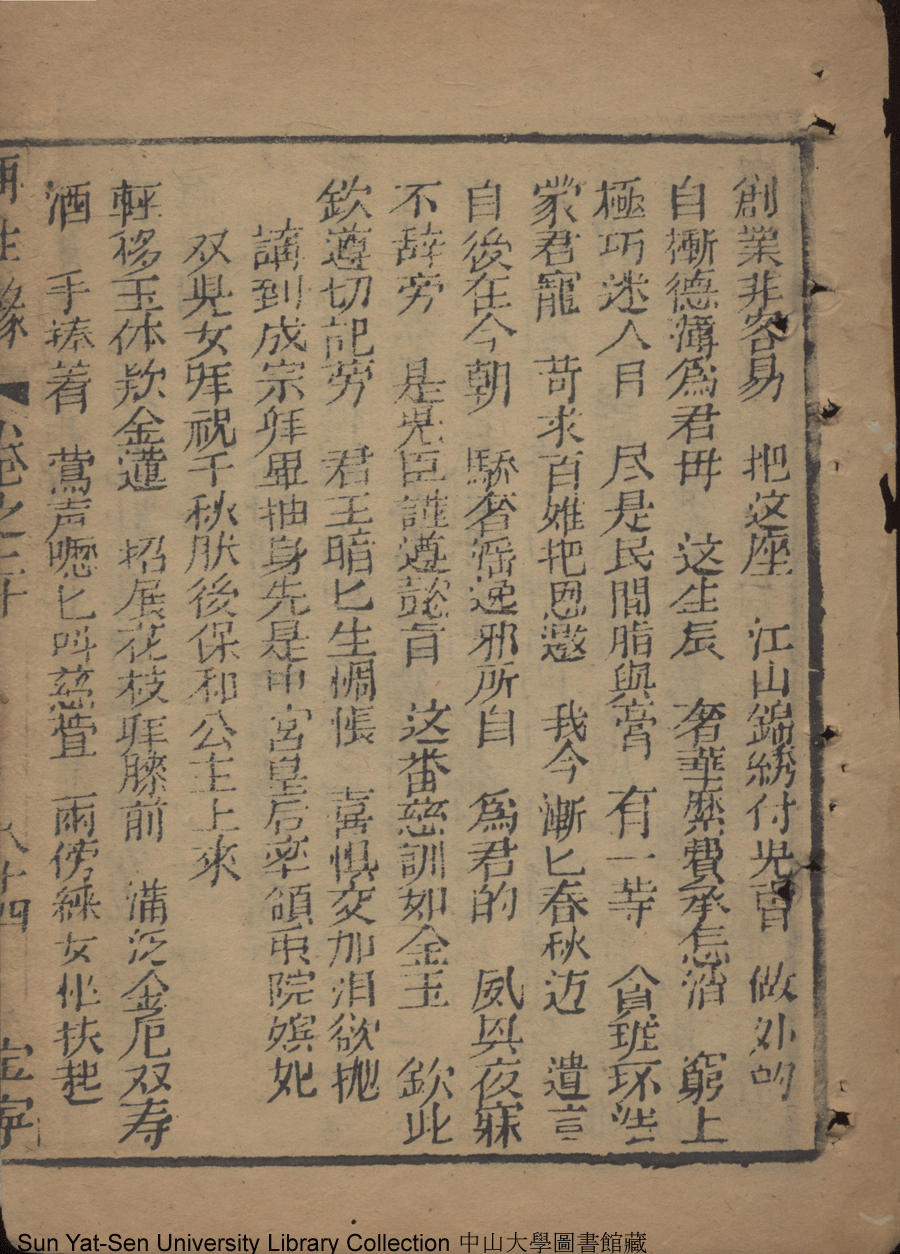 創業非容易　把这座　江山錦綉付兒曹　做外的
自慚德薄為君毋　这生辰　奢華縻費承怎消　窮上
極巧迷人目　尽是民間脂與膏　有一等　貪班环浩
蒙君寵　苛求百姓把恩邀　我今漸匕春秋迈　遺言
自後在今朝　驕奢滛逸邪所自　為君的　夙具夜寐
不辞旁　是児臣謹遵懿旨　这番慈訓如金玉　欽此
欽遵切記旁　君王暗匕生惆悵　喜惧交加泪欲抛
講到成宗拜畢抽身先是中宮皇后率領東院嬪妃
双児女拜祝千秋然後保和公主上來
輕移玉体欵金蓮　招展花枝拜膝前　滿泛金卮双寿
酒　手捧着　鶯声嚦匕呌慈萱　兩傍綵女忙扶起
再生緣　卷之二十　八十四　宝寧
Sun Yat-Sen University Library Collection 中山大學圖書館藏